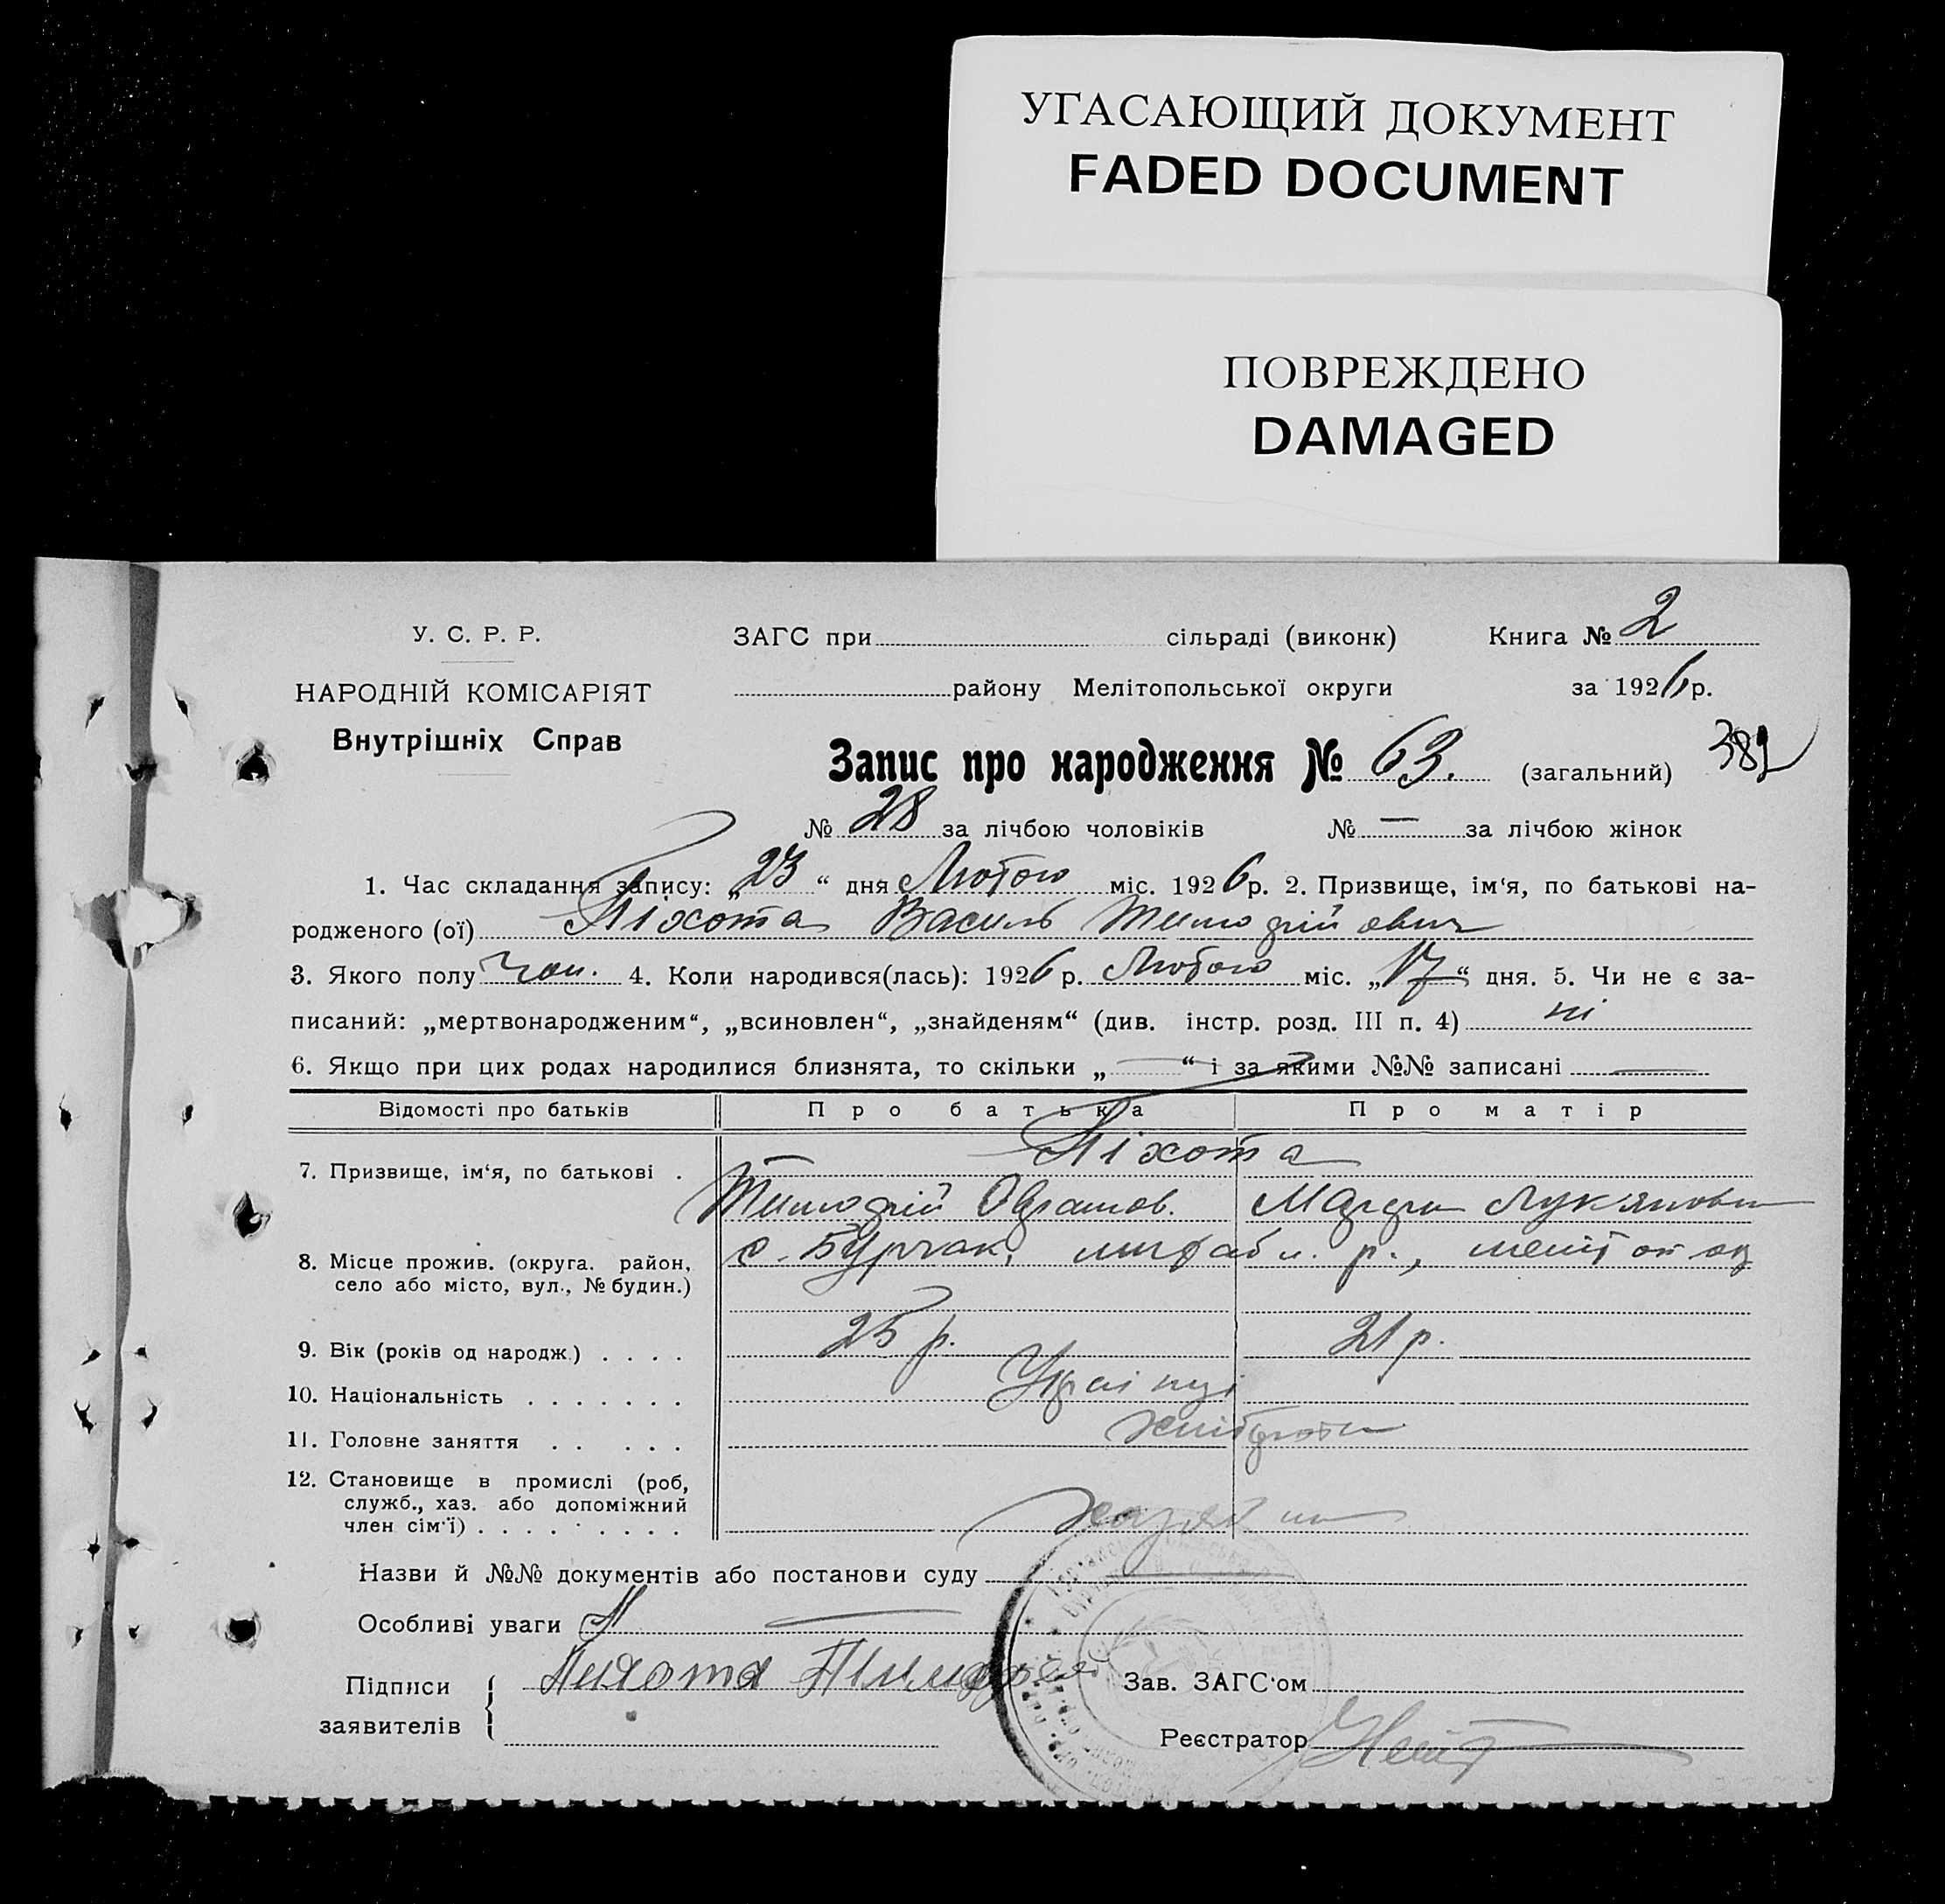 УГАСАЮЩИЙ ДОКУМЕНТ
FADED DOCUMENT
ПОВРЕЖДЕНО
DAMAGED
У. С. Р. Р.
НАРОДНІЙ КОМІСАРІЯТ
Внутрішніх Справ
ЗАГС при сільраді (виконк) Книга № 2
району Мелітопольської округи за 1926 р.
Запис про народження № 63. (загальний) 382
№ 28 за лічбою чоловіків № — за лічбою жінок
1. Час складання запису: „23“ дня Лютого міс. 1926 р. 2. Призвище, ім‘я, по батькові на-
родженого (ої) Піхота Василь Тимофійович
3. Якого полу чол. 4. Коли народився(лась): 1926 р. Лютого міс. „17“ дня. 5. Чи не є за-
писаний: „мертвонародженим“, „всиновлен“, „знайденям“ (див. інстр. розд. III п. 4) ні
6. Якщо при цих родах народилися близнята, то скільки „—“ і за якими №№ записані —
Відомості про батьків Про батька Про матір
7. Призвище, ім‘я, по батькові . Піхота
Тимофій Мар Лук'янов
8. Місце прожив. (округа. район,
село або місто, вул., № будин.)
с. Бурчак, р.,
9. Вік (років од народж.) . . . . 25 р. 21 р.
10. Національність . . . . . . . Українці
11. Головне заняття . . . . . хлібороби
12. Становище в промислі (роб,
служб., хаз. або допоміжний
член сім‘ї) . . . . . . . . .
Назви й №№ документів або постанови суду
Особливі уваги
Підписи
заявителів
Пихота Тимофей
Зав. ЗАГС‘ом
Реєстратор